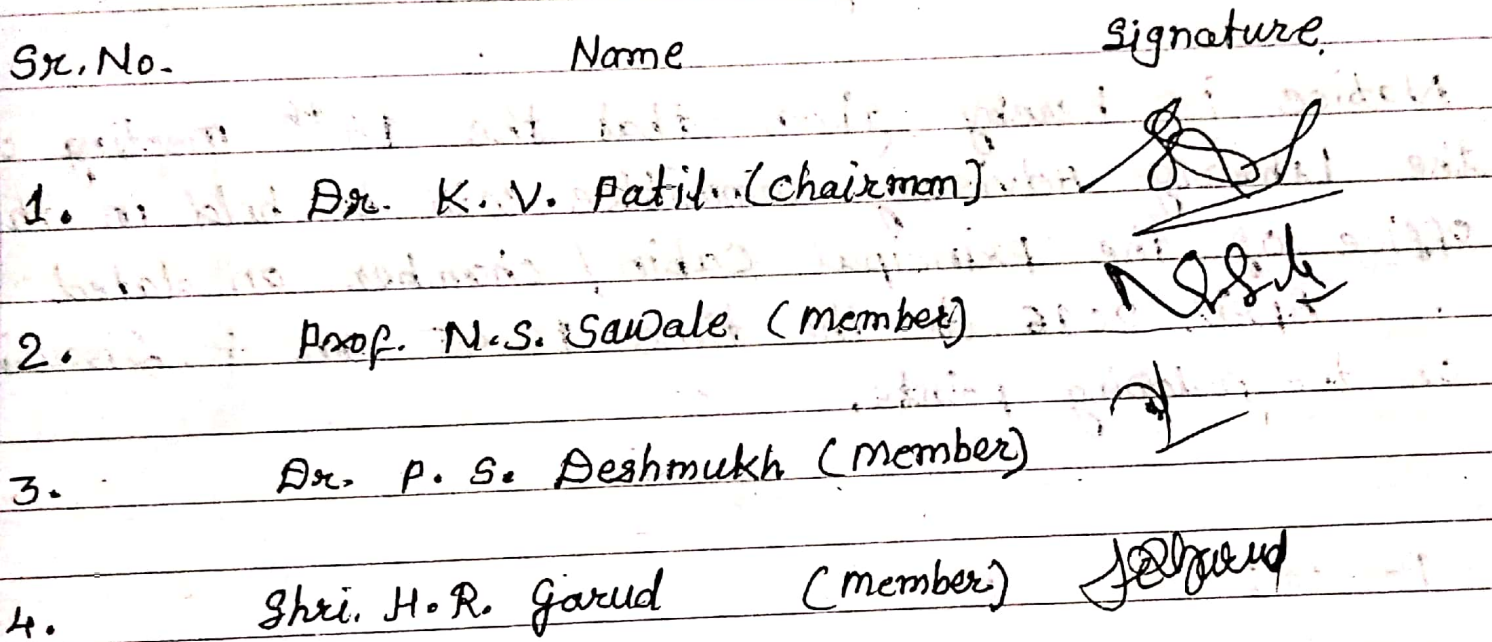 Sr. No. Name Signature
1. Dr. K. V. Patil (Chairman)
2. Prof. N.S. Sawale (member)
3. Dr. P. S. Deshmukh (member)
4. Shri. H.R. Garud (member)